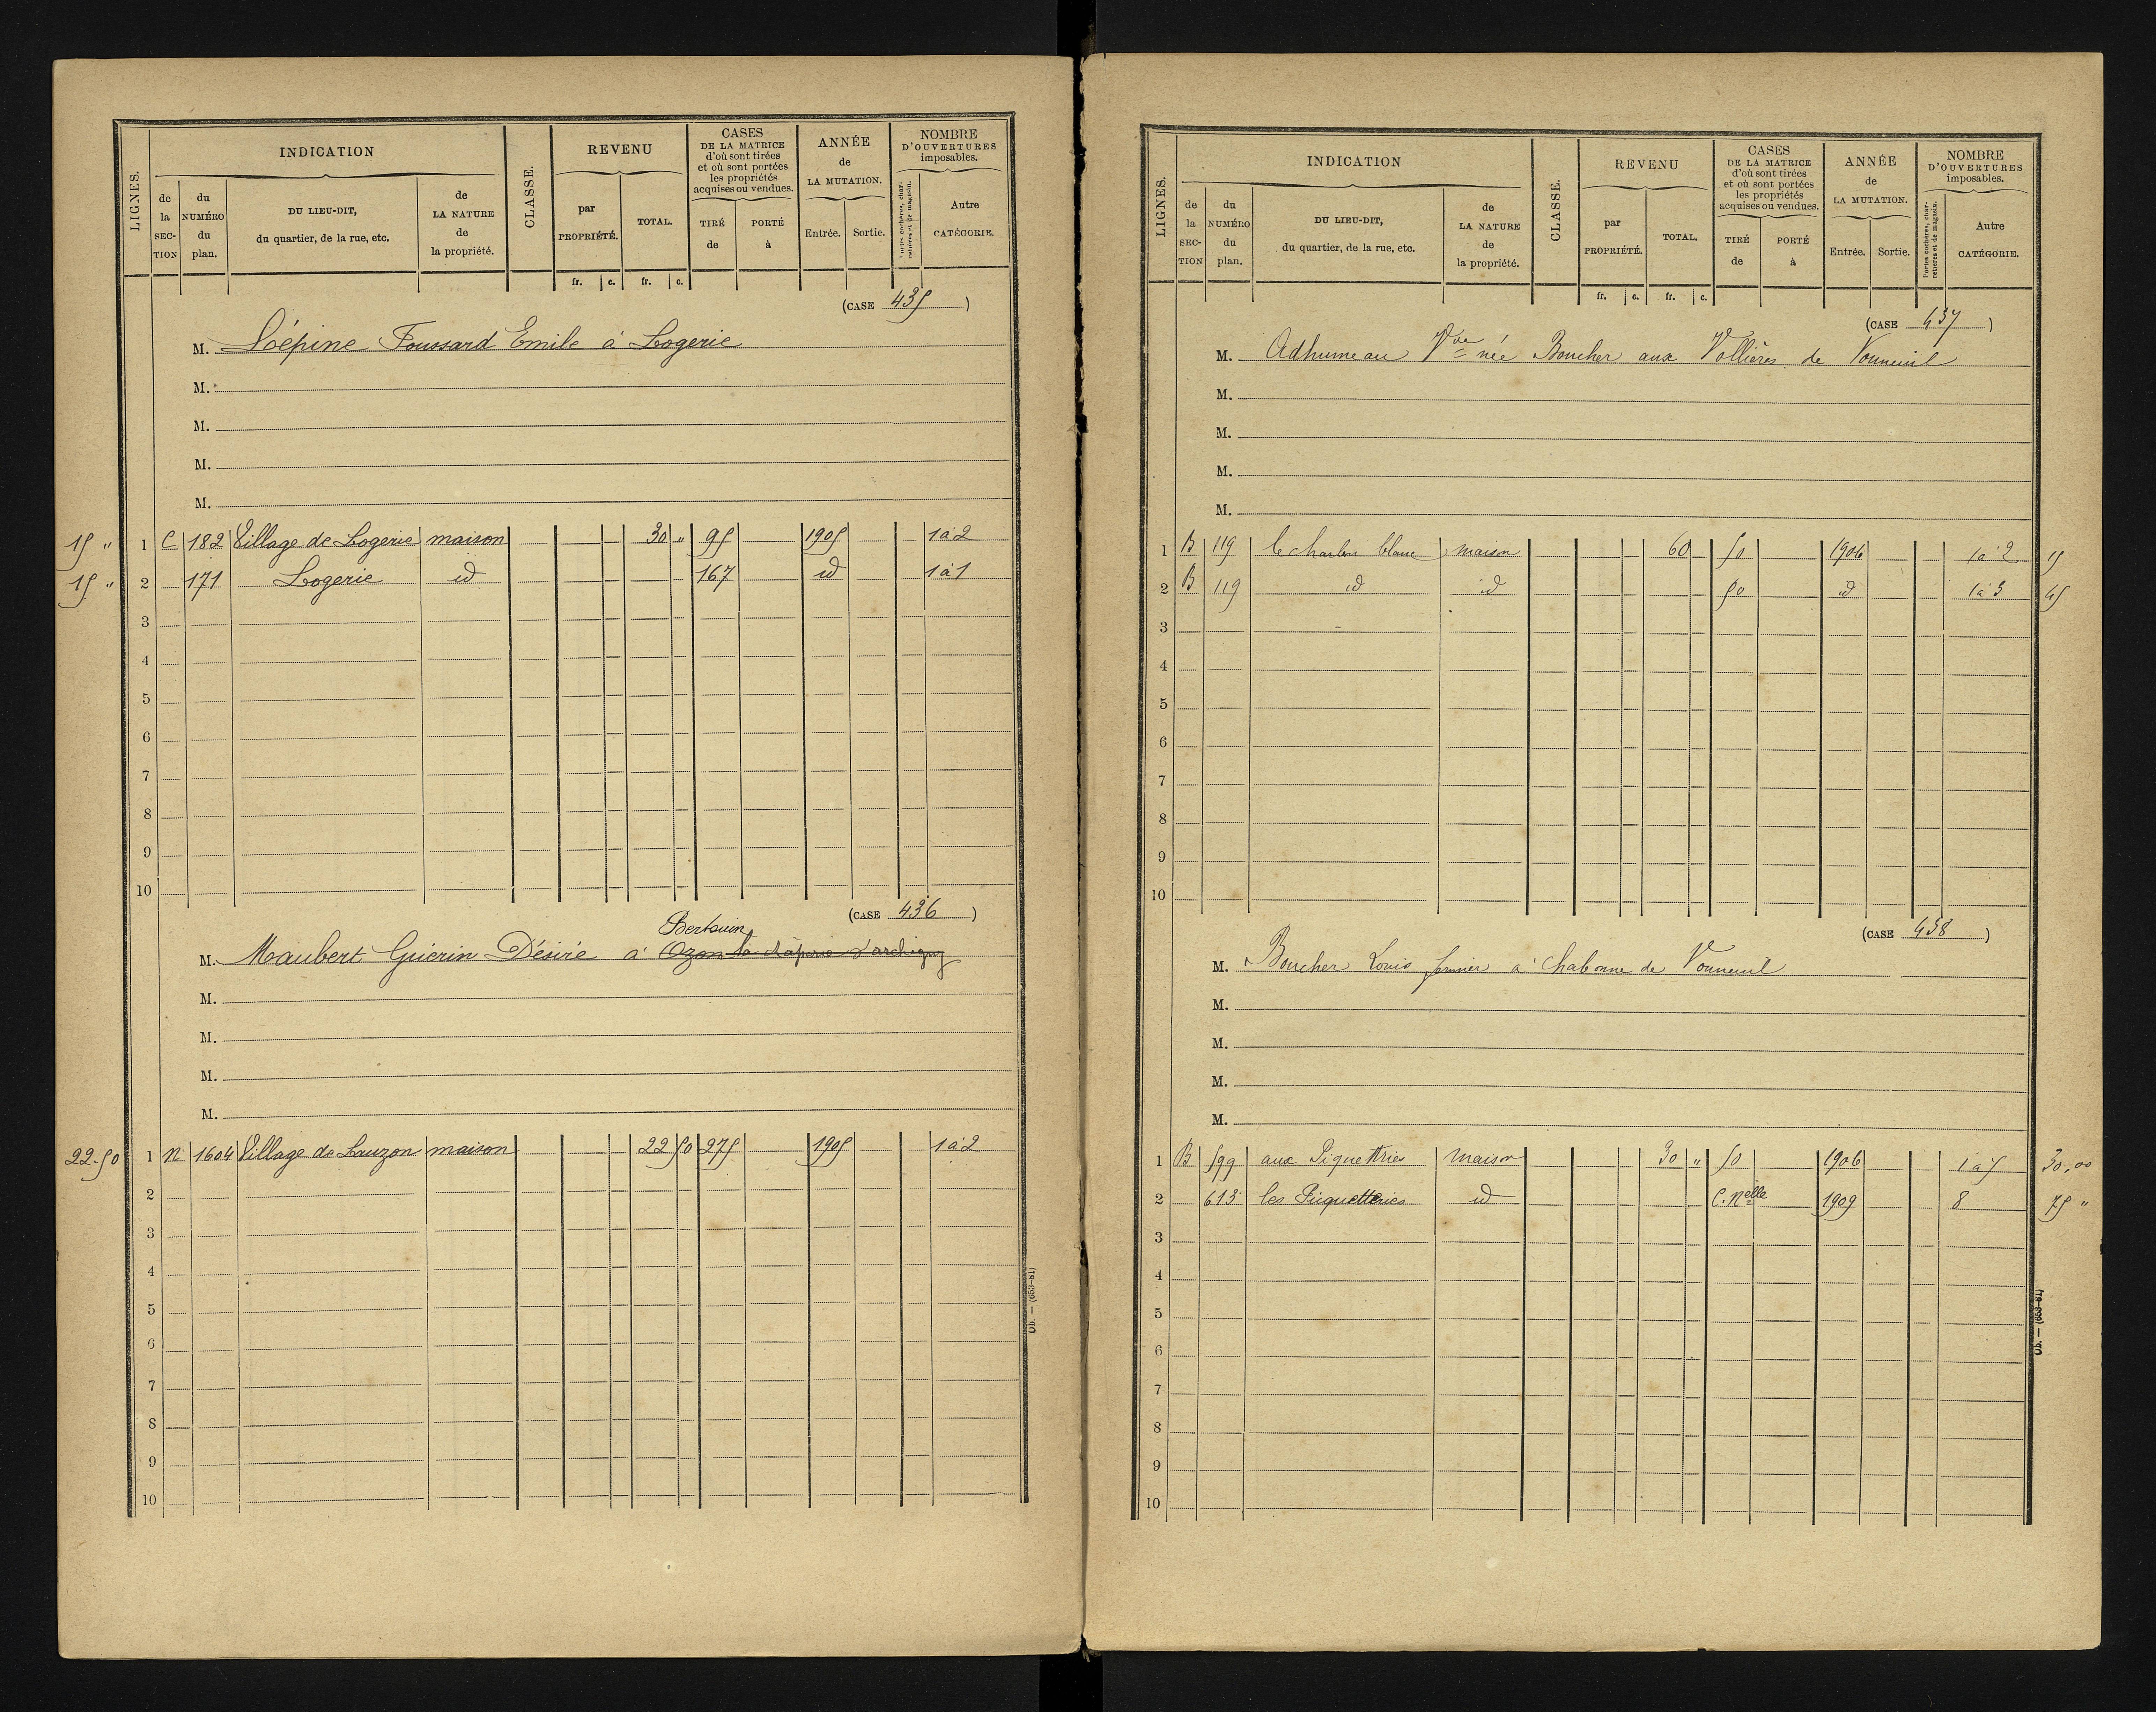 LIGNES.
INDICATION
de la SECTION
du NUMÉRO du plan.
DU LIEU-DIT, du quartier, de la rue, etc.
de LA NATURE de la propriété.
CLASSE.
REVENU
par PROPRIÉTÉ.
TOTAL.
CASES DE LA MATRICE d'où sont tirées et où sont portées les propriétés acquises ou vendues.
TIRÉ de
PORTÉ à
ANNÉE de LA MUTATION.
Entrée.
Sortie.
NOMBRE D'OUVERTURES imposables.
Portes cochères, charretières et de magasin.
Autre CATÉGORIE.
fr. c. fr. c.
(CASE 435)
M. Lépine Foussard Emile à Logerie
M.
M.
M.
M.
15 " 1 C 182 Village de Logerie maison 30 " 95 1905 1 à 2
15 " 2 171 Logerie id 167 id 1 à 1
3
4
5
6
7
8
9
10
(CASE 436)
Bertouin
M. Maubert Guérin Désiré à Ozon d'archigny
M.
M.
M.
M.
22.50 1 N 1604 Village de Lauzon maison 22 50 275 1905 1 à 2
2
3
4
5
6
7
8
9
10
Ob. — (653-81)
LIGNES.
INDICATION
de la SECTION
du NUMÉRO du plan.
DU LIEU-DIT, du quartier, de la rue, etc.
de LA NATURE de la propriété.
CLASSE.
REVENU
par PROPRIÉTÉ.
TOTAL.
CASES DE LA MATRICE d'où sont tirées et où sont portées les propriétés acquises ou vendues.
TIRÉ de
PORTÉ à
ANNÉE de LA MUTATION.
Entrée.
Sortie.
NOMBRE D'OUVERTURES imposables.
Portes cochères, charretières et de magasin.
Autre CATÉGORIE.
fr. c. fr. c.
(CASE 437)
M. Adhumeau Vve née Boucher aux Vollières de Vouneuil
M.
M.
M.
M.
1 B 119 le blanc maison 60 50 1906 1 à 2 15
2 B 119 id id 50 id 1 à 3 45
3
4
5
6
7
8
9
10
(CASE 438)
M. Boucher Louis fermier à Chabonne de Vouneuil
M.
M.
M.
M.
1 B 599 aux Piquettries maison 30 " 50 1906 1 à 5 30,00
2 613 les Piquetteries id C. Nelle 1909 8 75 "
3
4
5
6
7
8
9
10
Ob. — (653-81)